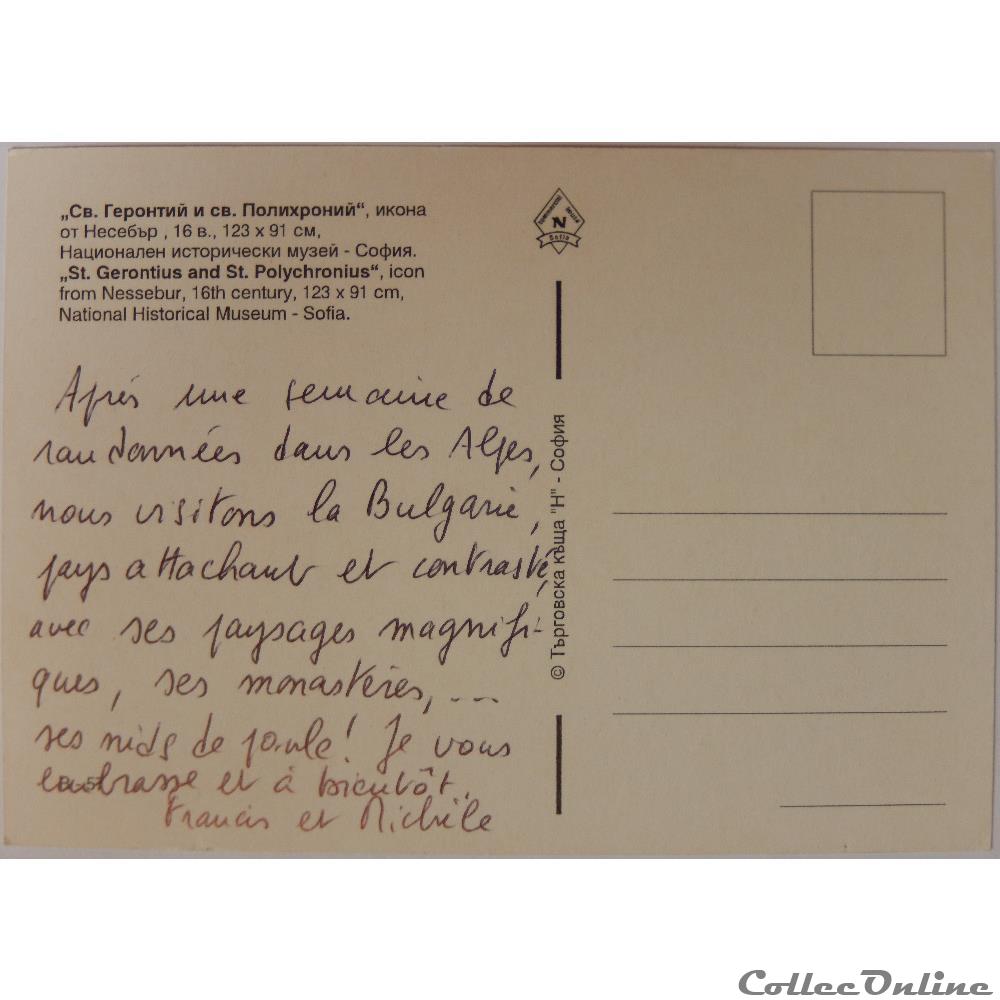 „Св. Геронтий и св. Полихроний“, икона
от Несебър , 16 в., 123 x 91 см,
Национален исторически музей - София.
„St. Gerontius and St. Polychronius“, icon
from Nessebur, 16th century, 123 x 91 cm,
National Historical Museum - Sofia.
Après une semaine de
randonnées dans les Alpes,
nous visitons la Bulgarie,
pays attachant et contrasté,
avec ses paysages magnifi-
ques, ses monastères, ...
ses nids de poule! Je vous
embrasse et à bientôt.
Francis et Michèle
N
Sofia
© Търговска къща "Н" - София
CollecOnline